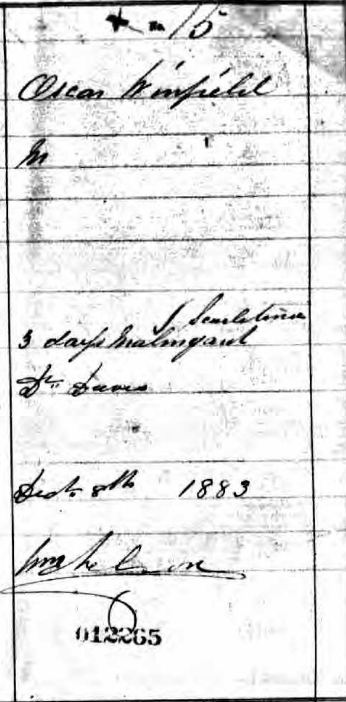 15
Oscar Winfield
M
Scarlatina
3 days Malingant
Dr. Davis
Sept 8th 1883
012265